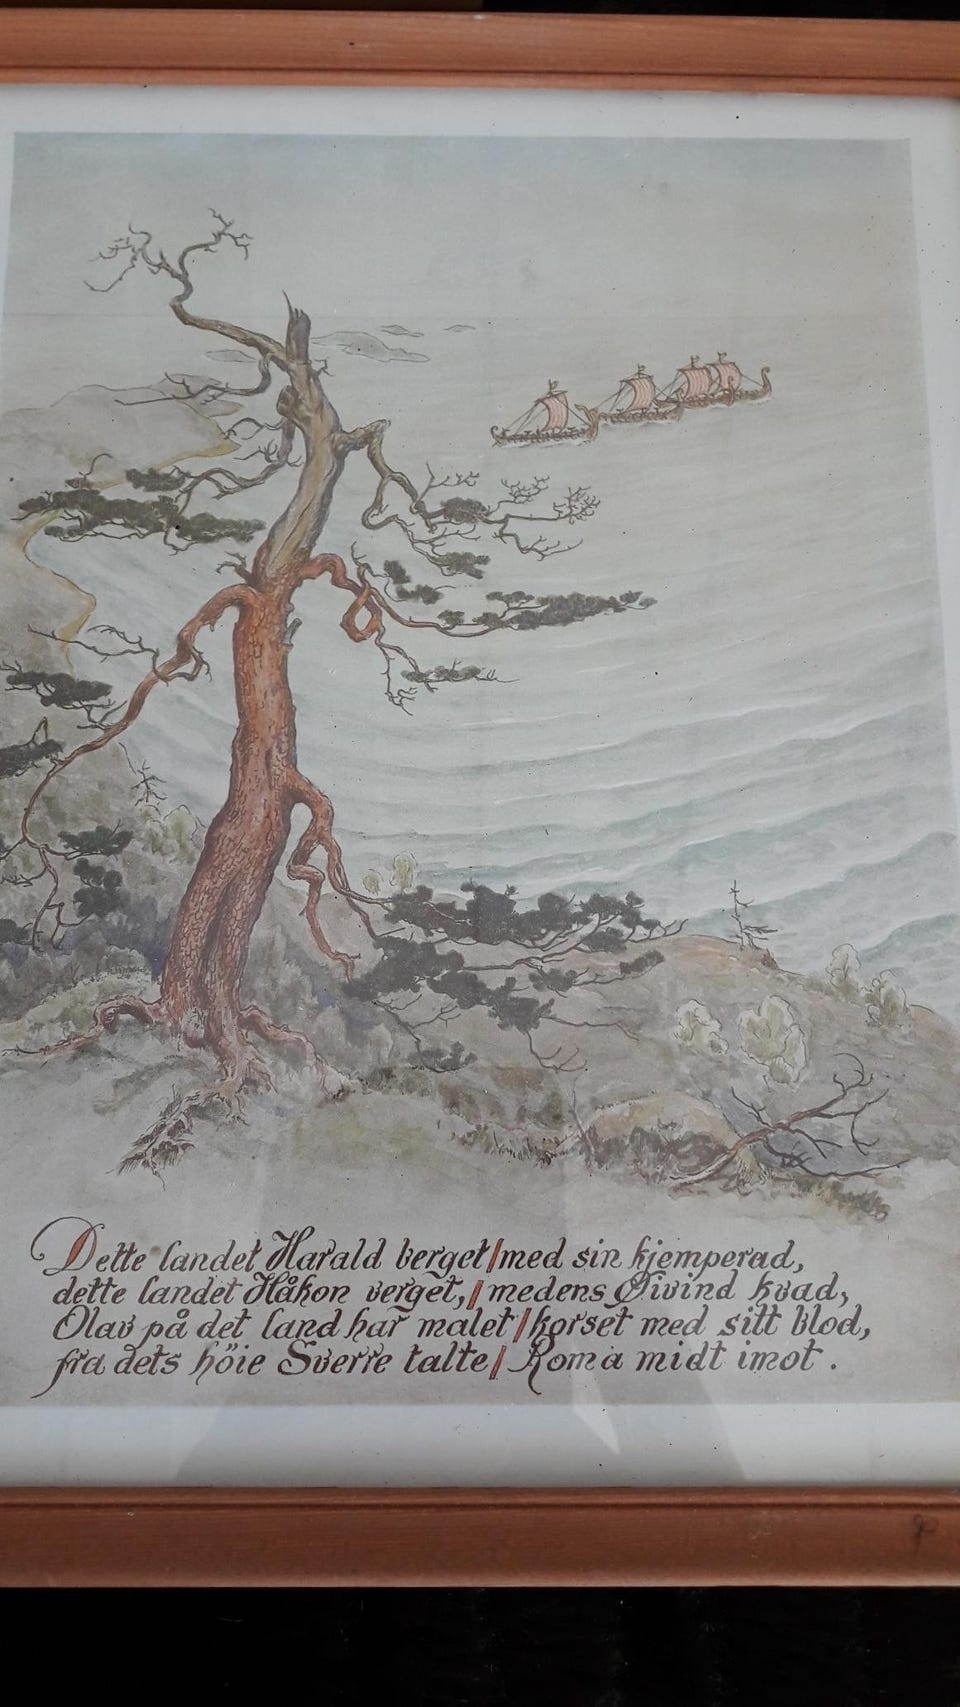 Dette landet Harald berget/med sin kjemperad,
dette landet Håkon verget,/medens Øivind kvad,
Olav på det land har malet/korset med sitt blod,
fra dets höie Sverre talte/Roma midt imot.